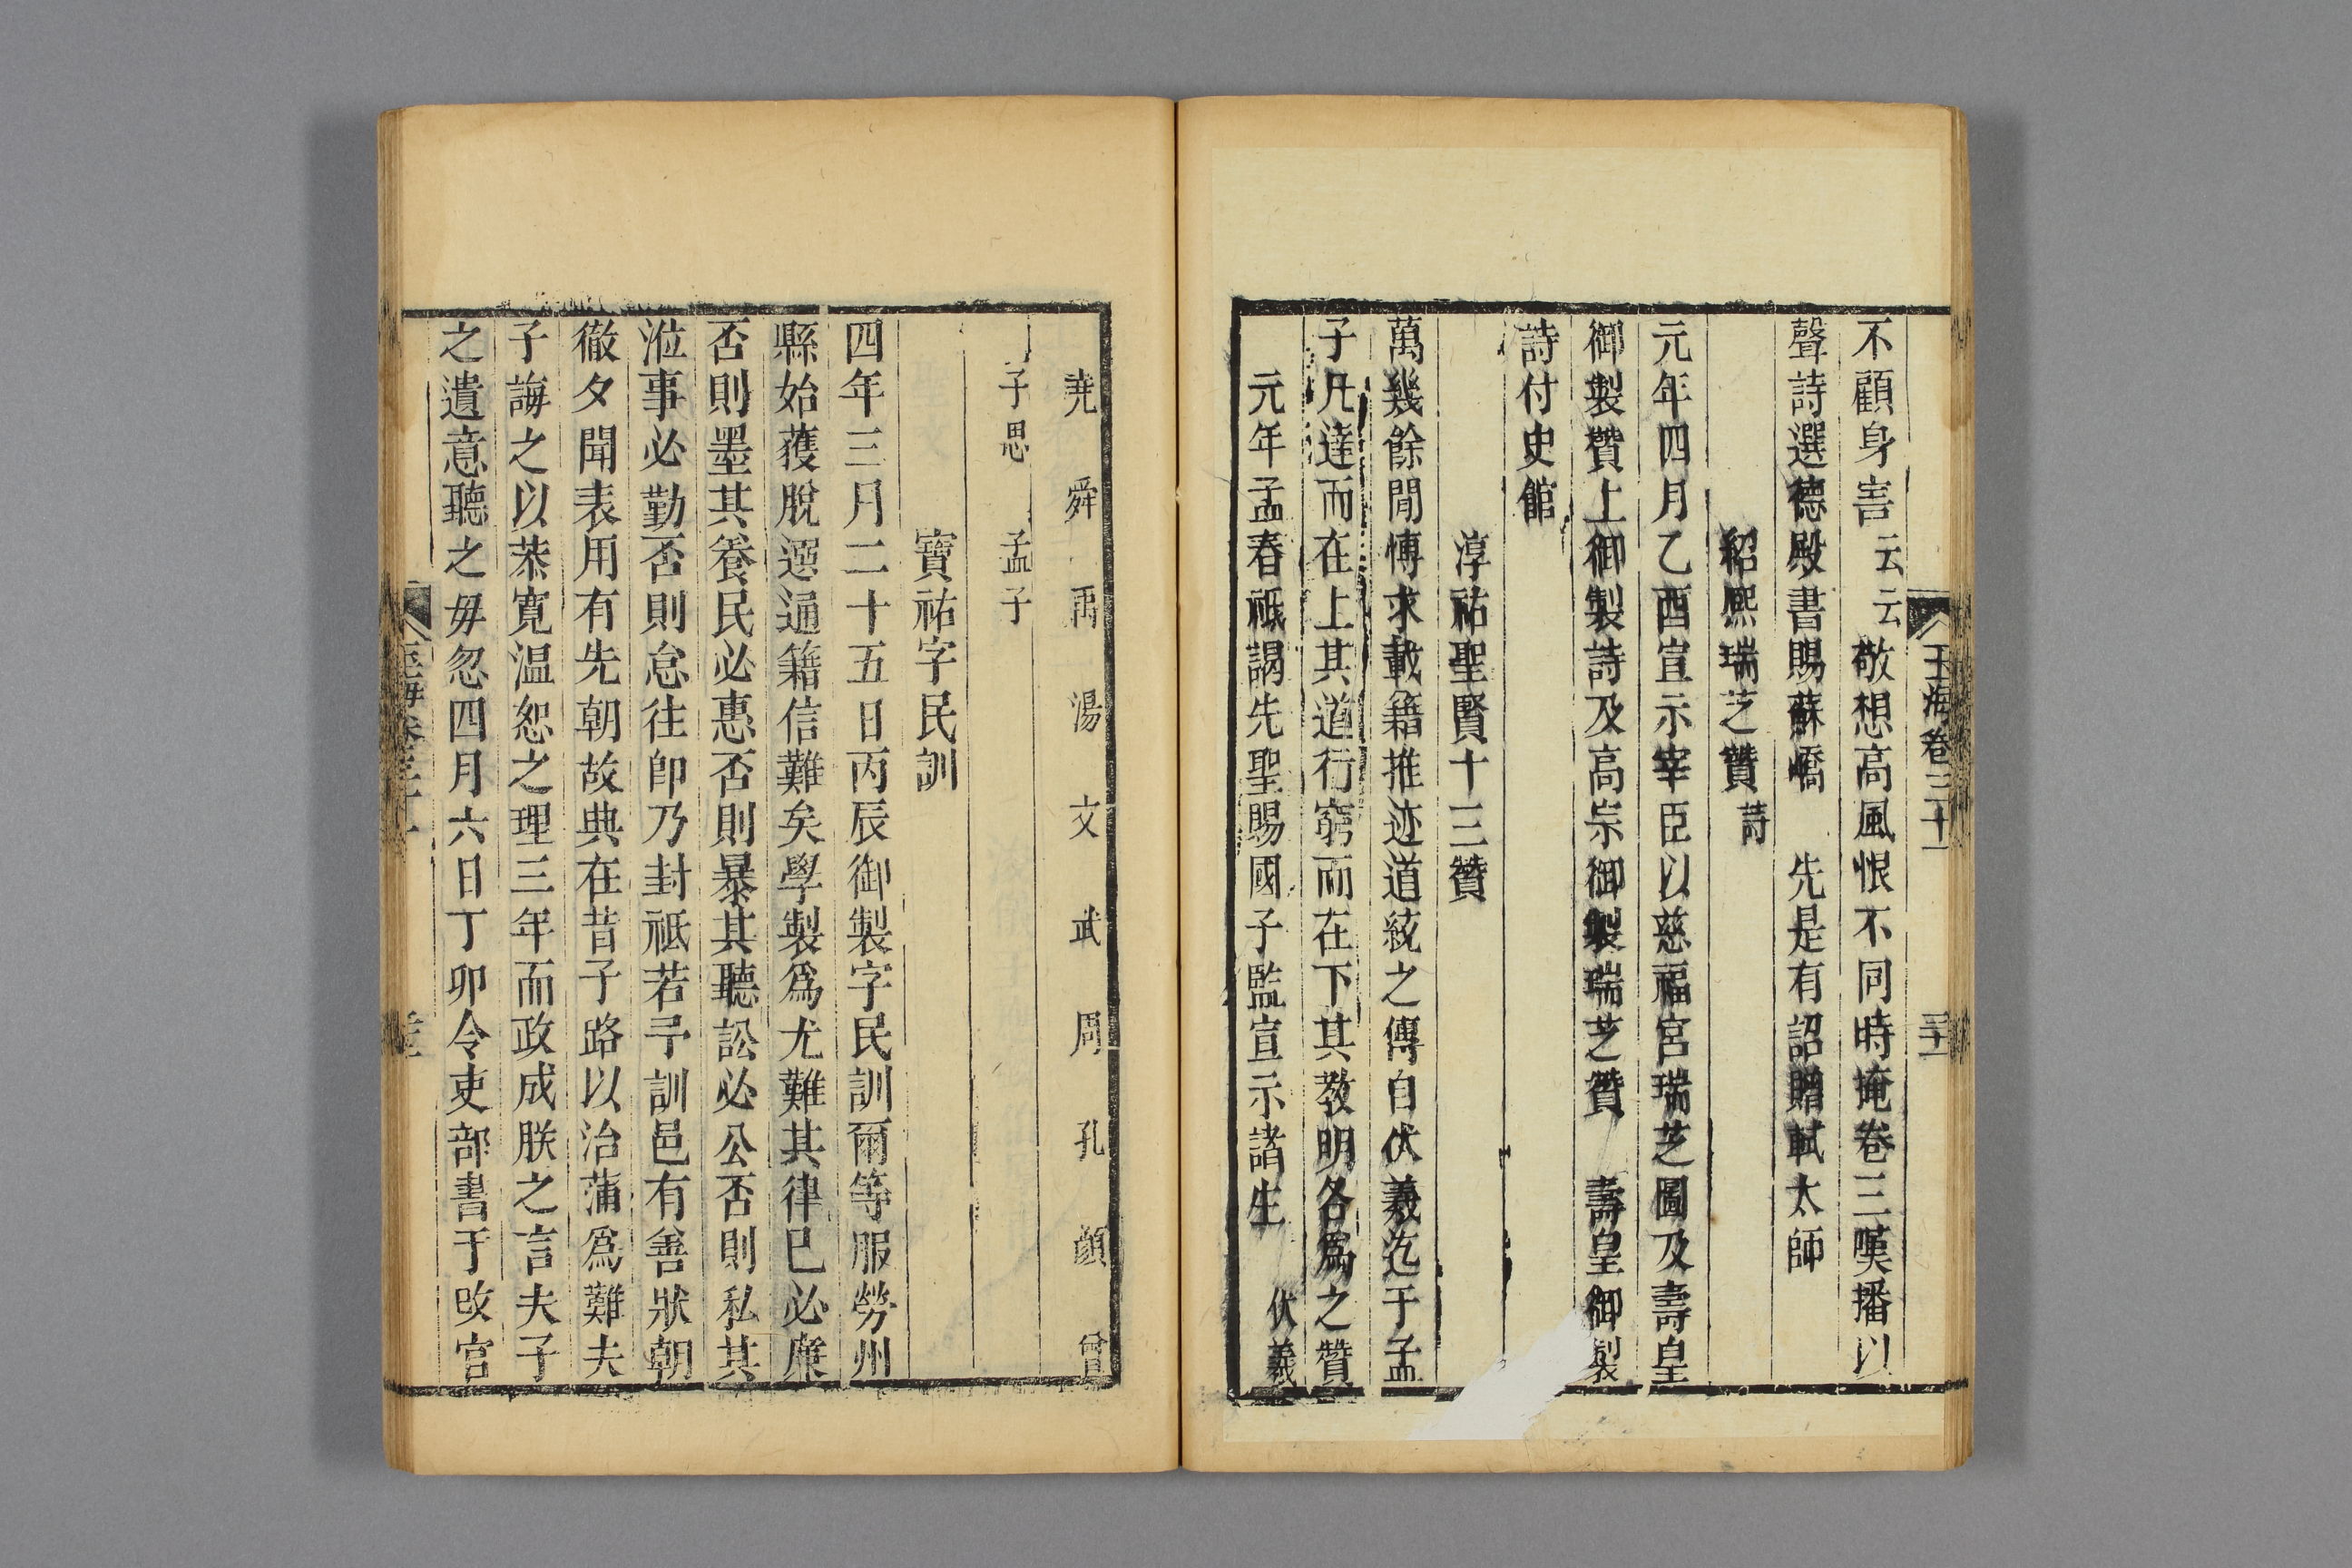 玉海卷三十一
三十一
不顧身害云云敬想高風恨不同時掩卷三嘆播以
聲詩選德殿書賜蘇嶠　先是有詔贈軾太師
紹熙瑞芝贊詩
元年四月乙酉宣示宰臣以慈福宮瑞芝圖及壽皇
御製贊上御製詩及高宗御製瑞芝贊　壽皇御製
詩付史館
淳祐聖賢十三贊
萬幾餘閒博求載籍推迹道統之傳自伏羲迄于孟
子凡達而在上其道行窮而在下其教明各爲之贊
元年孟春祗謁先聖賜國子監宣示諸生　伏羲
堯　舜　禹　湯　文　武　周　孔　顏　曾
子思　孟子
寶祐字民訓
四年三月二十五日丙辰御製字民訓爾等服勞州
縣始獲脫選通籍信難矣學製爲尤難其律已必廉
否則墨其養民必惠否則暴其聽訟必公否則私其
涖事必勤否則怠往卽乃封祗若予訓邑有善狀朝
徹夕聞表用有先朝故典在昔子路以治蒲爲難夫
子誨之以恭寬温恕之理三年而政成朕之言夫子
之遺意聽之毋忽四月六日丁卯令吏部書于改官
玉海卷三十一